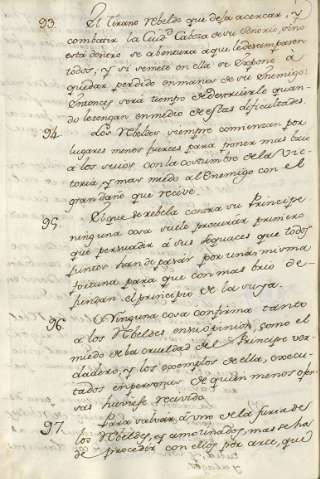 93. El tirano rebelde que deja acercar, y
combatir la Ciud Cabeza de su Senorio, sino
esta dentro se abentura a que le desamparen
todos, y si se mete en ella se expone a
quedar perdido en manos de su Enemigo:
Entonces sera tiempo de destruirle quan-
do le tengan en medio de estas dificultades.
94. Los Rebeldes siempre comienzan por
lugares menos fuertes para poner mas brio
a los suios con la costumbre de la Vic-
toria, y mas miedo al Enemigo con el
gran daño que recive.
95. El que se rebela contra su Principe
ninguna cosa suele procurar primero
que persuadir a sus sequaces que todos
juntos han de pasar por una misma
fortuna para que con mas brio de-
fiendan el principio de la suya.
96. Ninguna cosa confirma tanto
a los Rebeldes en su opinion, como el
miedo de la crueldad del Principe ver-
dadero, y los exemplos de ella, execu-
tados en personas de quien menos ofen-
sas huviese recivido.
97. Para salvar, a uno de la furia de
los Rebeldes, y amotinados, mas se ha
de proceder con ellos por arte, que